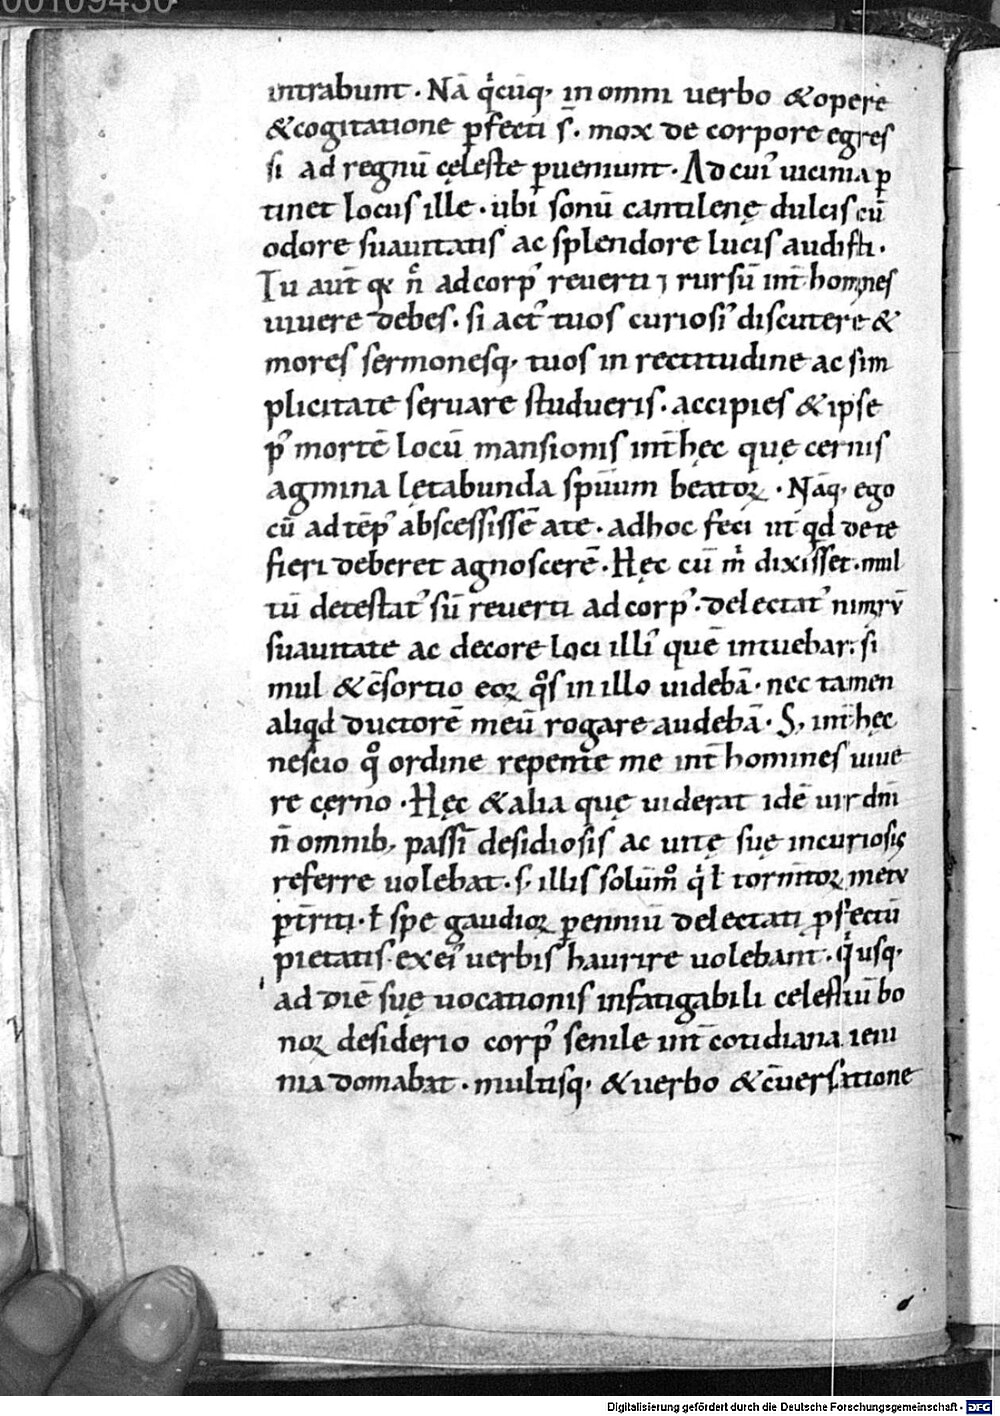 00109430
intrabunt . Nā qͥcūq; in omni uerbo & opere
& cogitatione ꝑfecti s̄ . mox de corpore egres
si ad regnū cęleste ꝑueniunt . Ad cuiꝰ uicinia ꝑ
tinet locus ille . ubi sonū cantilenę dulcis cū
odore suauitatis ac splendore lucis audisti .
Tu aut̄ qa n̄c ad corpꝰ reuerti ⁊ rursū int̄ homines
uiuere debes . si actꝰ tuos curiosiꝰ discutere &
mores sermonesq; tuos in rectitudine ac sim
plicitate seruare studueris . accipies & ipse
pꝰ mortē locū mansionis int̄ hęc quę cernis
agmina lętabunda spūum beatoꝝ . Nāq; ego
cū ad tēpꝰ abscessissē a te . ad hoc feci ut qͥd de te
fieri deberet agnoscerē . Hęc cū mͥ dixisset . mul
tū detestatꝰ sū reuerti ad corpꝰ . delectatꝰ nimirū
suauitate ac decore loci illiꝰ quē intuebar . si
mul & c̄sortio eoꝝ qͦs in illo uidebā . nec tamen
aliqͥd ductorē meū rogare audebā . S; int̄ hęc
nescio qͦ ordine repente me int̄ homines uiue
re cerno . Hęc & alia quę uiderat idē uir dn̄i
n̄ omnib; passī desidiosis ac uitę suę incuriosis
referre uolebat . s; illis solūmͦ qͥ ł tormtoꝝ metu
ꝑt̄riti . ł spe gaudioꝝ ꝑenniū delectati ꝓfectū
pietatis ex eiꝰ uerbis haurire uolebant . qͥusq;
ad diē suę uocationis infatigabili celestiū bo
noꝝ desiderio corpꝰ senile int̄ cotidiana ieiu
nia domabat . multisq; & uerbo & c̄uersatione
Digitalisierung gefördert durch die Deutsche Forschungsgemeinschaft - DFG